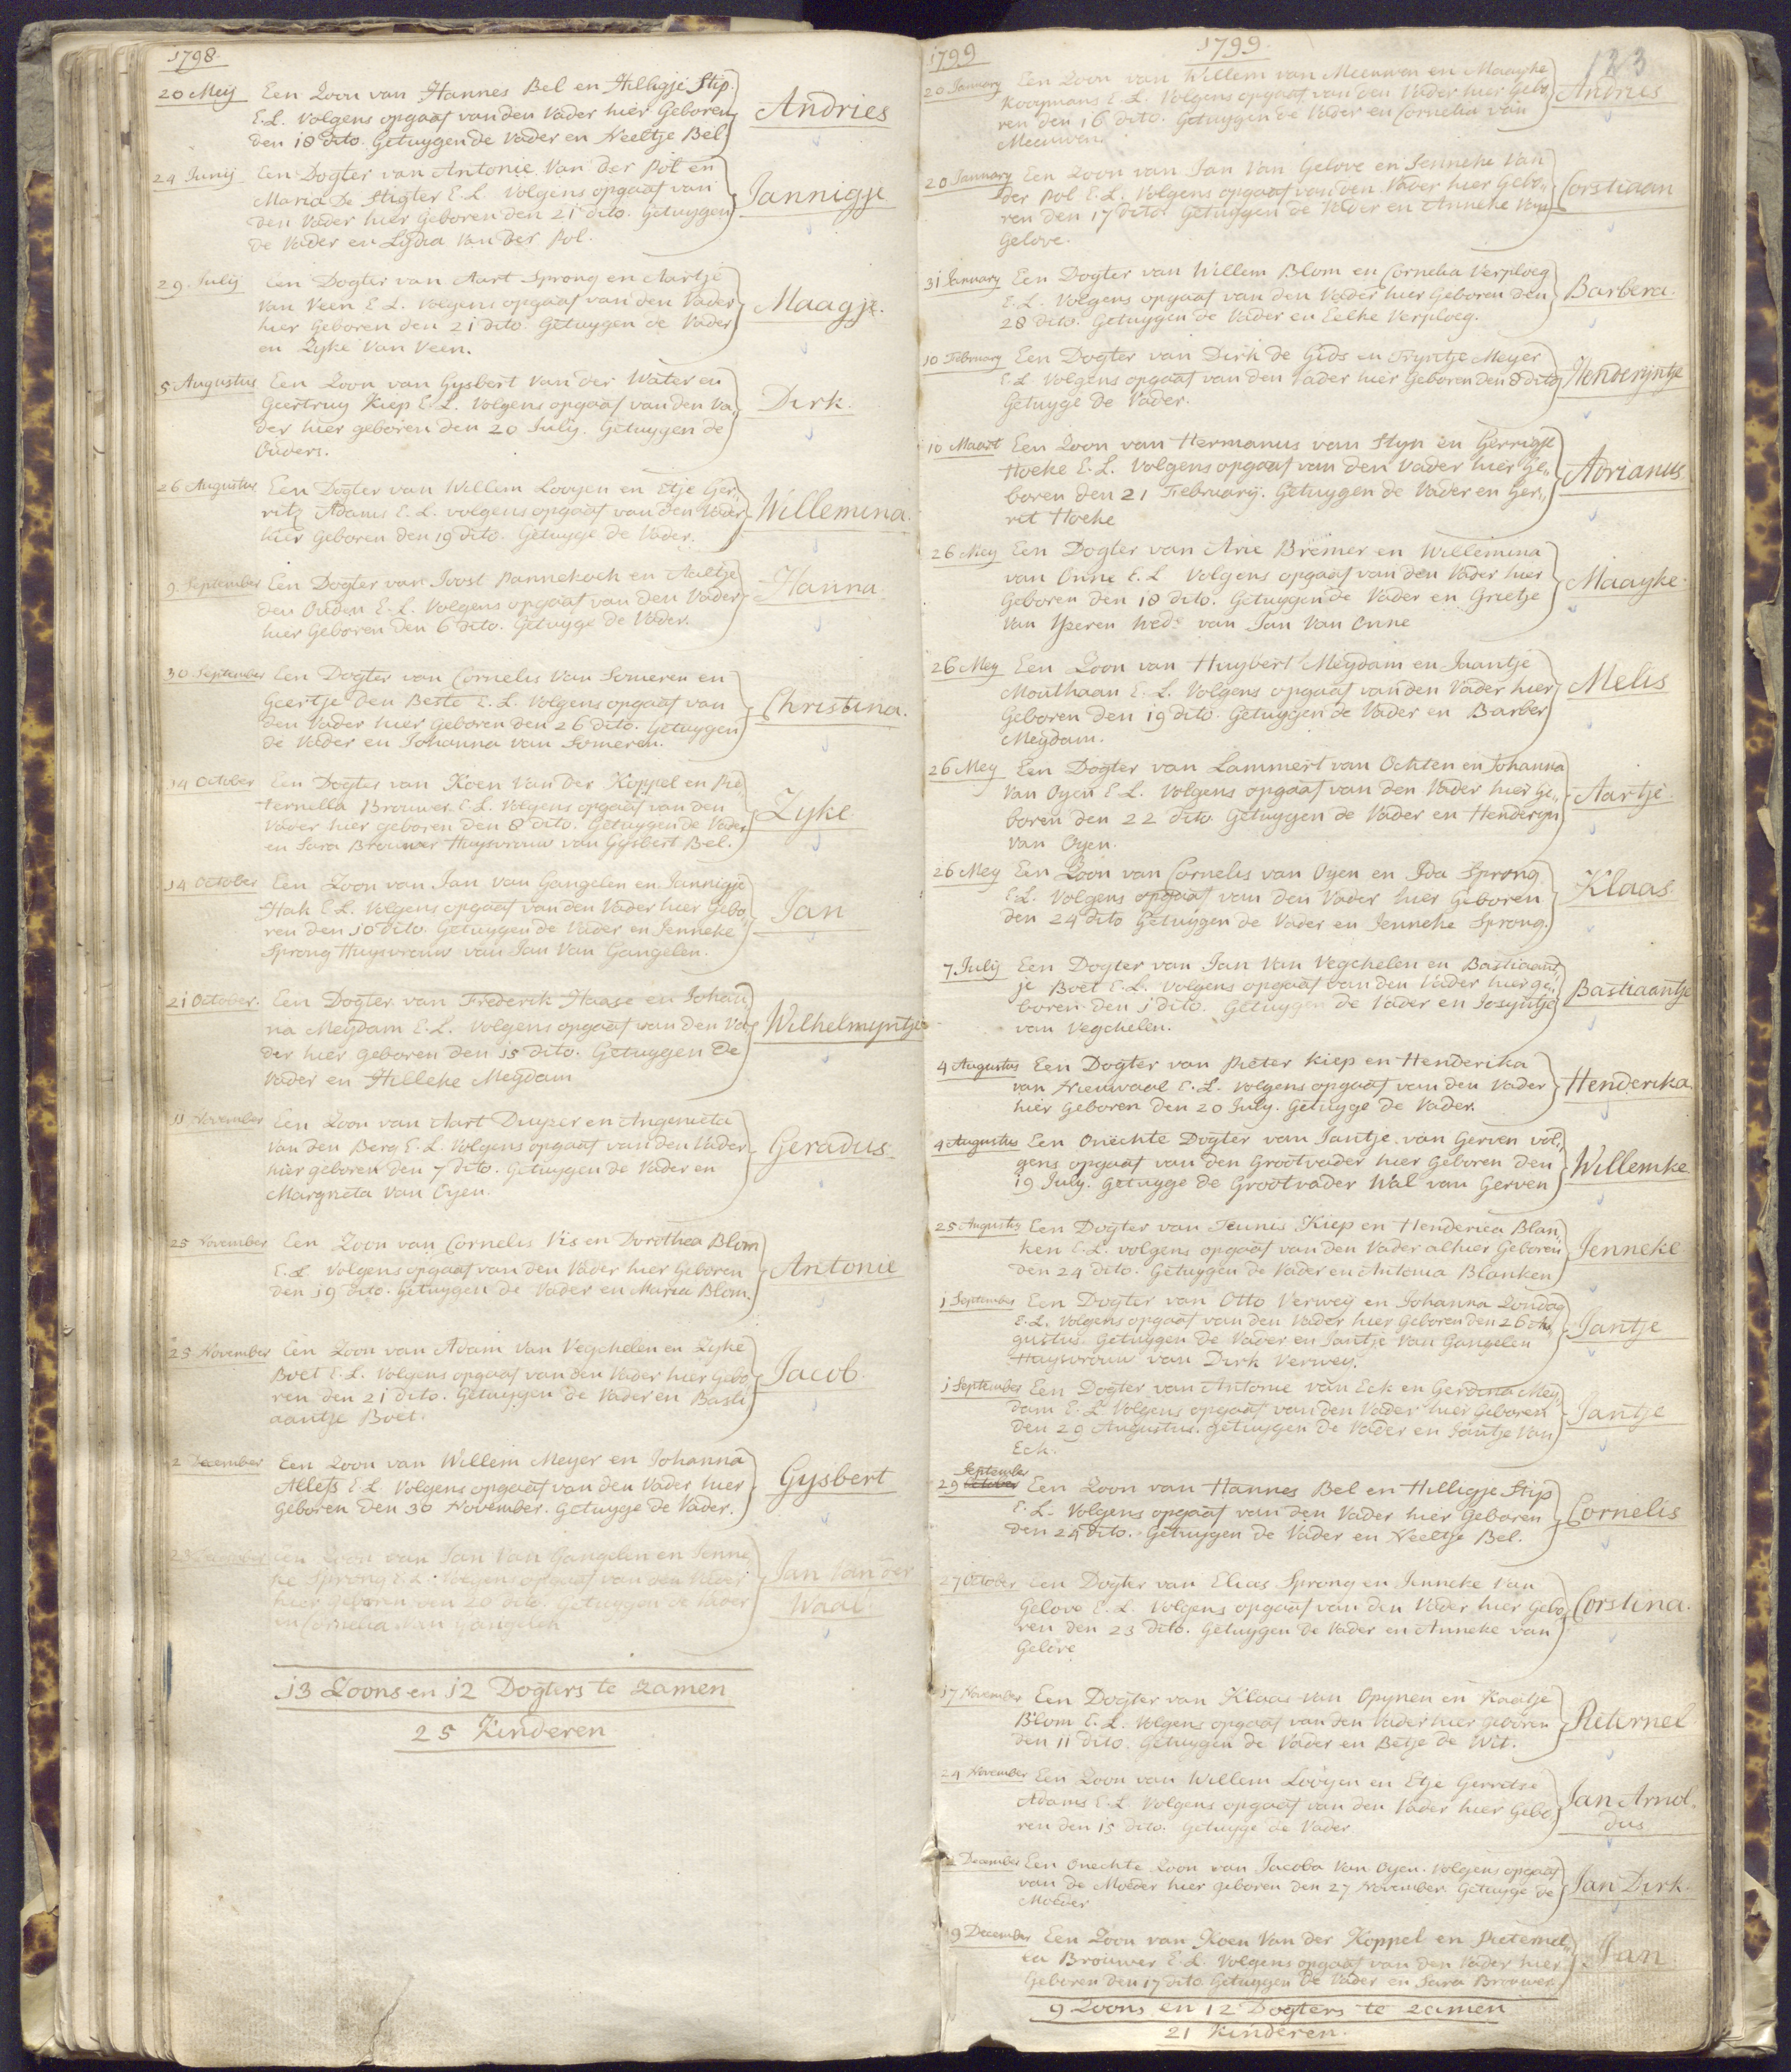 1798.
20 Meij Een Zoon van Hannes Bel en Hilligje Stip.
E.L. Volgens opgaaf van den Vader hier Geboren
den 18 dito. Getuygen de Vader en Neeltje Bel.
Andries
24 Junij Een Dogter van Antonie Van der Pol en
Maria De Stigter E.L. Volgens opgaaf van
den Vader hier Geboren den 21 dito. Getuygen
de Vader en Lydia Van der Pol.
Jannigje
29. Julij Een Dogter van Aart Sprong en Aartje
Van Veen E.L. Volgens opgaaf van den Vader
hier Geboren den 21 dito. Getuygen de Vader
en Zyke Van Veen.
Maagje.
5 Augustus Een Zoon van Gysbert Van der Water en
Geertruy Kiep E.L. Volgens opgaaf van den Va„
der hier geboren den 20 July. Getuygen de
Ouders.
Dirk.
26 Augustus Een Dogter van Willem Looyen en Etje Ger„
ritz Adams E.L. volgens opgaaf van den Vader
hier Geboren den 19 dito. Getuyge de Vader.
Willemina.
9 September Een Dogter van Joost Pannekoek en Aaltje
den Ouden E.L. Volgens opgaaf van den Vader
hier Geboren den 6 dito. Getuyge de Vader.
Hanna.
30 September Een Dogter van Cornelis Van Someren en
Geertje den Beste E.L. Volgens opgaaf van
den Vader hier Geboren den 26 dito. Getuygen
de Vader en Johanna van Someren.
Christina.
14 October Een Dogter van Koen Van der Koppel en Pie„
ternella Brouwer E.L. Volgens opgaaf van den
Vader hier geboren den 8 dito. Getuygen de Vader
en Sara Brouwer Huysvrouw van Gysbert Bel.
Zyke
14 October Een Zoon van Jan van Gangelen en Jannigje
Hak E.L. Volgens opgaaf van den Vader hier Gebo„
ren den 10 dito. Getuygen de Vader en Jenneke
Sprong Huysvrouw van Jan Van Gangelen.
Jan
21 October. Een Dogter van Frederik Haase en Johan„
na Meydam E.L. Volgens opgaaf van den Va„
der hier geboren den 15 dito. Getuygen de
Vader en Hilleke Meydam
Wilhelmyntje
11 November Een Zoon van Aart Duyzer en Angenieta
Van den Berg E.L. Volgens opgaaf van den Vader
hier geboren den 7 dito. Getuygen de Vader en
Margrieta Van Oyen.
Geradus.
25 November Een Zoon van Cornelis Vis en Dorothea Blom
E.L. Volgens opgaaf van den Vader hier Geboren
den 19 dito. Getuygen de Vader en Maria Blom.
Antonie
25 November Een Zoon van Adam Van Vegchelen en Zyke
Boet E.L. Volgens opgaaf van den Vader hier Gebo„
ren den 21 dito. Getuygen de Vader en Basti„
aantje Boet.
Jacob.
2 December Een Zoon van Willem Meyer en Johanna
Allefs E.L. Volgens opgaaf van den Vader hier
Geboren den 30 November. Getuyge de Vader.
Gysbert
23 December Een Zoon van Jan Van Gangelen en Jenne„
ke Sprong E.L. Volgens opgaaf van den Vader
hier Geboren den 20 dito. Getuygen de Vader
en Cornelia van Gangelen
Jan Van der
Waal.
13 Zoons en 12 Dogters te zamen
25 Kinderen
1799 1799. 183
20 January Een Zoon van Willem van Meeuwen en Maayke
Kooymans E.L. Volgens opgaaf van den Vader hier Gebo„
ren den 16 dito. Getuygen de Vader en Cornelia van
Meeuwen.
Andries
20 January Een Zoon van Jan Van Gelove en Jenneke Van
der Pol E.L. Volgens opgaaf van den Vader hier Gebo„
ren den 17 dito. Getuygen de Vader en Anneke Van
Gelove.
Corstiaan
31 January Een Dogter van Willem Blom en Cornelia Verploeg
E.L. Volgens opgaaf van den Vader hier Geboren den
28 dito. Getuygen de Vader en Eelke Verploeg.
Barbera.
10 February Een Dogter van Dirk de Gids en Tryntje Meyer
E.L. Volgens opgaaf van den Vader hier Geboren den 8 dito
Getuyge de Vader.
Henderyntje
10 Maart Een Zoon van Hermanus van Styn en Gerrigje
Hoeke E.L. Volgens opgaaf van den Vader hier Ge„
boren den 21 February. Getuygen de Vader en Ger„
rit Hoeke
Adrianus.
26 Mey Een Dogter van Arie Bremer en Willemina
van Onne E.L. Volgens opgaaf van den Vader hier
Geboren den 18 dito. Getuygen de Vader en Grietje
Van Yseren Wed: van Jan Van Onne
Maayke.
26 Mey Een Zoon van Huybert Meydam en Jaantje
Mouthaan E.L. Volgens opgaaf van den Vader hier
Geboren den 19 dito. Getuygen de Vader en Barber
Meydam.
Melis
26 Mey Een Dogter van Lammert van Ochten en Johanna
Van Oyen E.L. Volgens opgaaf van den Vader hier Ge„
boren den 22 dito. Getuygen de Vader en Henderyn
Van Oyen.
Aartje.
26 Mey Een Zoon van Cornelis van Oyen en Ida Sprong.
E.L. Volgens opgaaf van den Vader hier Geboren
den 24 dito Getuygen de Vader en Jenneke Sprong.
Klaas.
7 July Een Dogter van Jan Van Vegchelen en Bastiaant„
je Boet E.L. Volgens opgaaf van den Vader hier ge„
boren den 1 dito. Getuygen de Vader en Josyntje
van Vegchelen.
Bastiaantje
4 Augustus Een Dogter van Pieter Kiep en Henderika
van Nieuwaal E.L. Volgens opgaaf van den Vader
hier Geboren den 20 July. Getuyge de Vader.
Henderika.
4 Augustus Een Onechte Dogter van Jantje van Gerven vol„
gens opgaaf van den Grootvader hier Geboren den
19 July. Getuyge de Grootvader Wal van Gerven
Willemke
25 Augustus Een Dogter van Teunis Kiep en Henderica Blan„
ken E.L. volgens opgaaf van den Vader alhier Geboren
den 24 dito. Getuygen de Vader en Antonia Blanken
Jenneke
1 September Een Dogter van Otto Verwey en Johanna Zondag
E.L. Volgens opgaaf van den Vader hier Geboren den 26 Au„
gustus. Getuygen de Vader en Jantje Van Gangelen
Huysvrouw van Dirk Verwey.
Jantje
1 September Een Dogter van Antonie van Eck en Gerdina Mey„
dam E.L. Volgens opgaaf van den Vader hier Geboren
den 29 Augustus. Getuygen de Vader en Jantje Van
Eck.
Jantje
September
29 October Een Zoon van Hannes Bel en Hilligje Stip
E.L. Volgens opgaaf van den Vader hier Geboren
den 24 dito. Getuygen de Vader en Neeltje Bel.
Cornelis
27 October Een Dogter van Elias Sprong en Jenneke Van
Gelove E.L. Volgens opgaaf van den Vader hier Gebo„
ren den 23 dito. Getuygen de Vader en Anneke van
Gelove
Corstina.
17 November Een Dogter van Klaas van Opynen en Kaatje
Blom E.L. Volgens opgaaf van den Vader hier geboren
den 11 dito. Getuygen de Vader en Betje de Wit.
Pieternel
24 November Een Zoon van Willem Looyen en Etje Gerritse
Adams E.L. Volgens opgaaf van den Vader hier Gebo„
ren den 15 dito. Getuyge de Vader
Jan Arnol„
dus
December Een Onechte Zoon van Jacoba Van Oyen. Volgens opgaaf
van de Moeder hier geboren den 27 November. Getuyge de
Moeder
Jan Dirk.
19 December Een Zoon van Koen Van der Koppel en Pieternel„
la Brouwer E.L. Volgens opgaaf van den Vader hier
Geboren den 17 dito. Getuygen de Vader en Sara Brouwer.
Jan
9 Zoons en 12 Dogters te zamen
21 Kinderen.